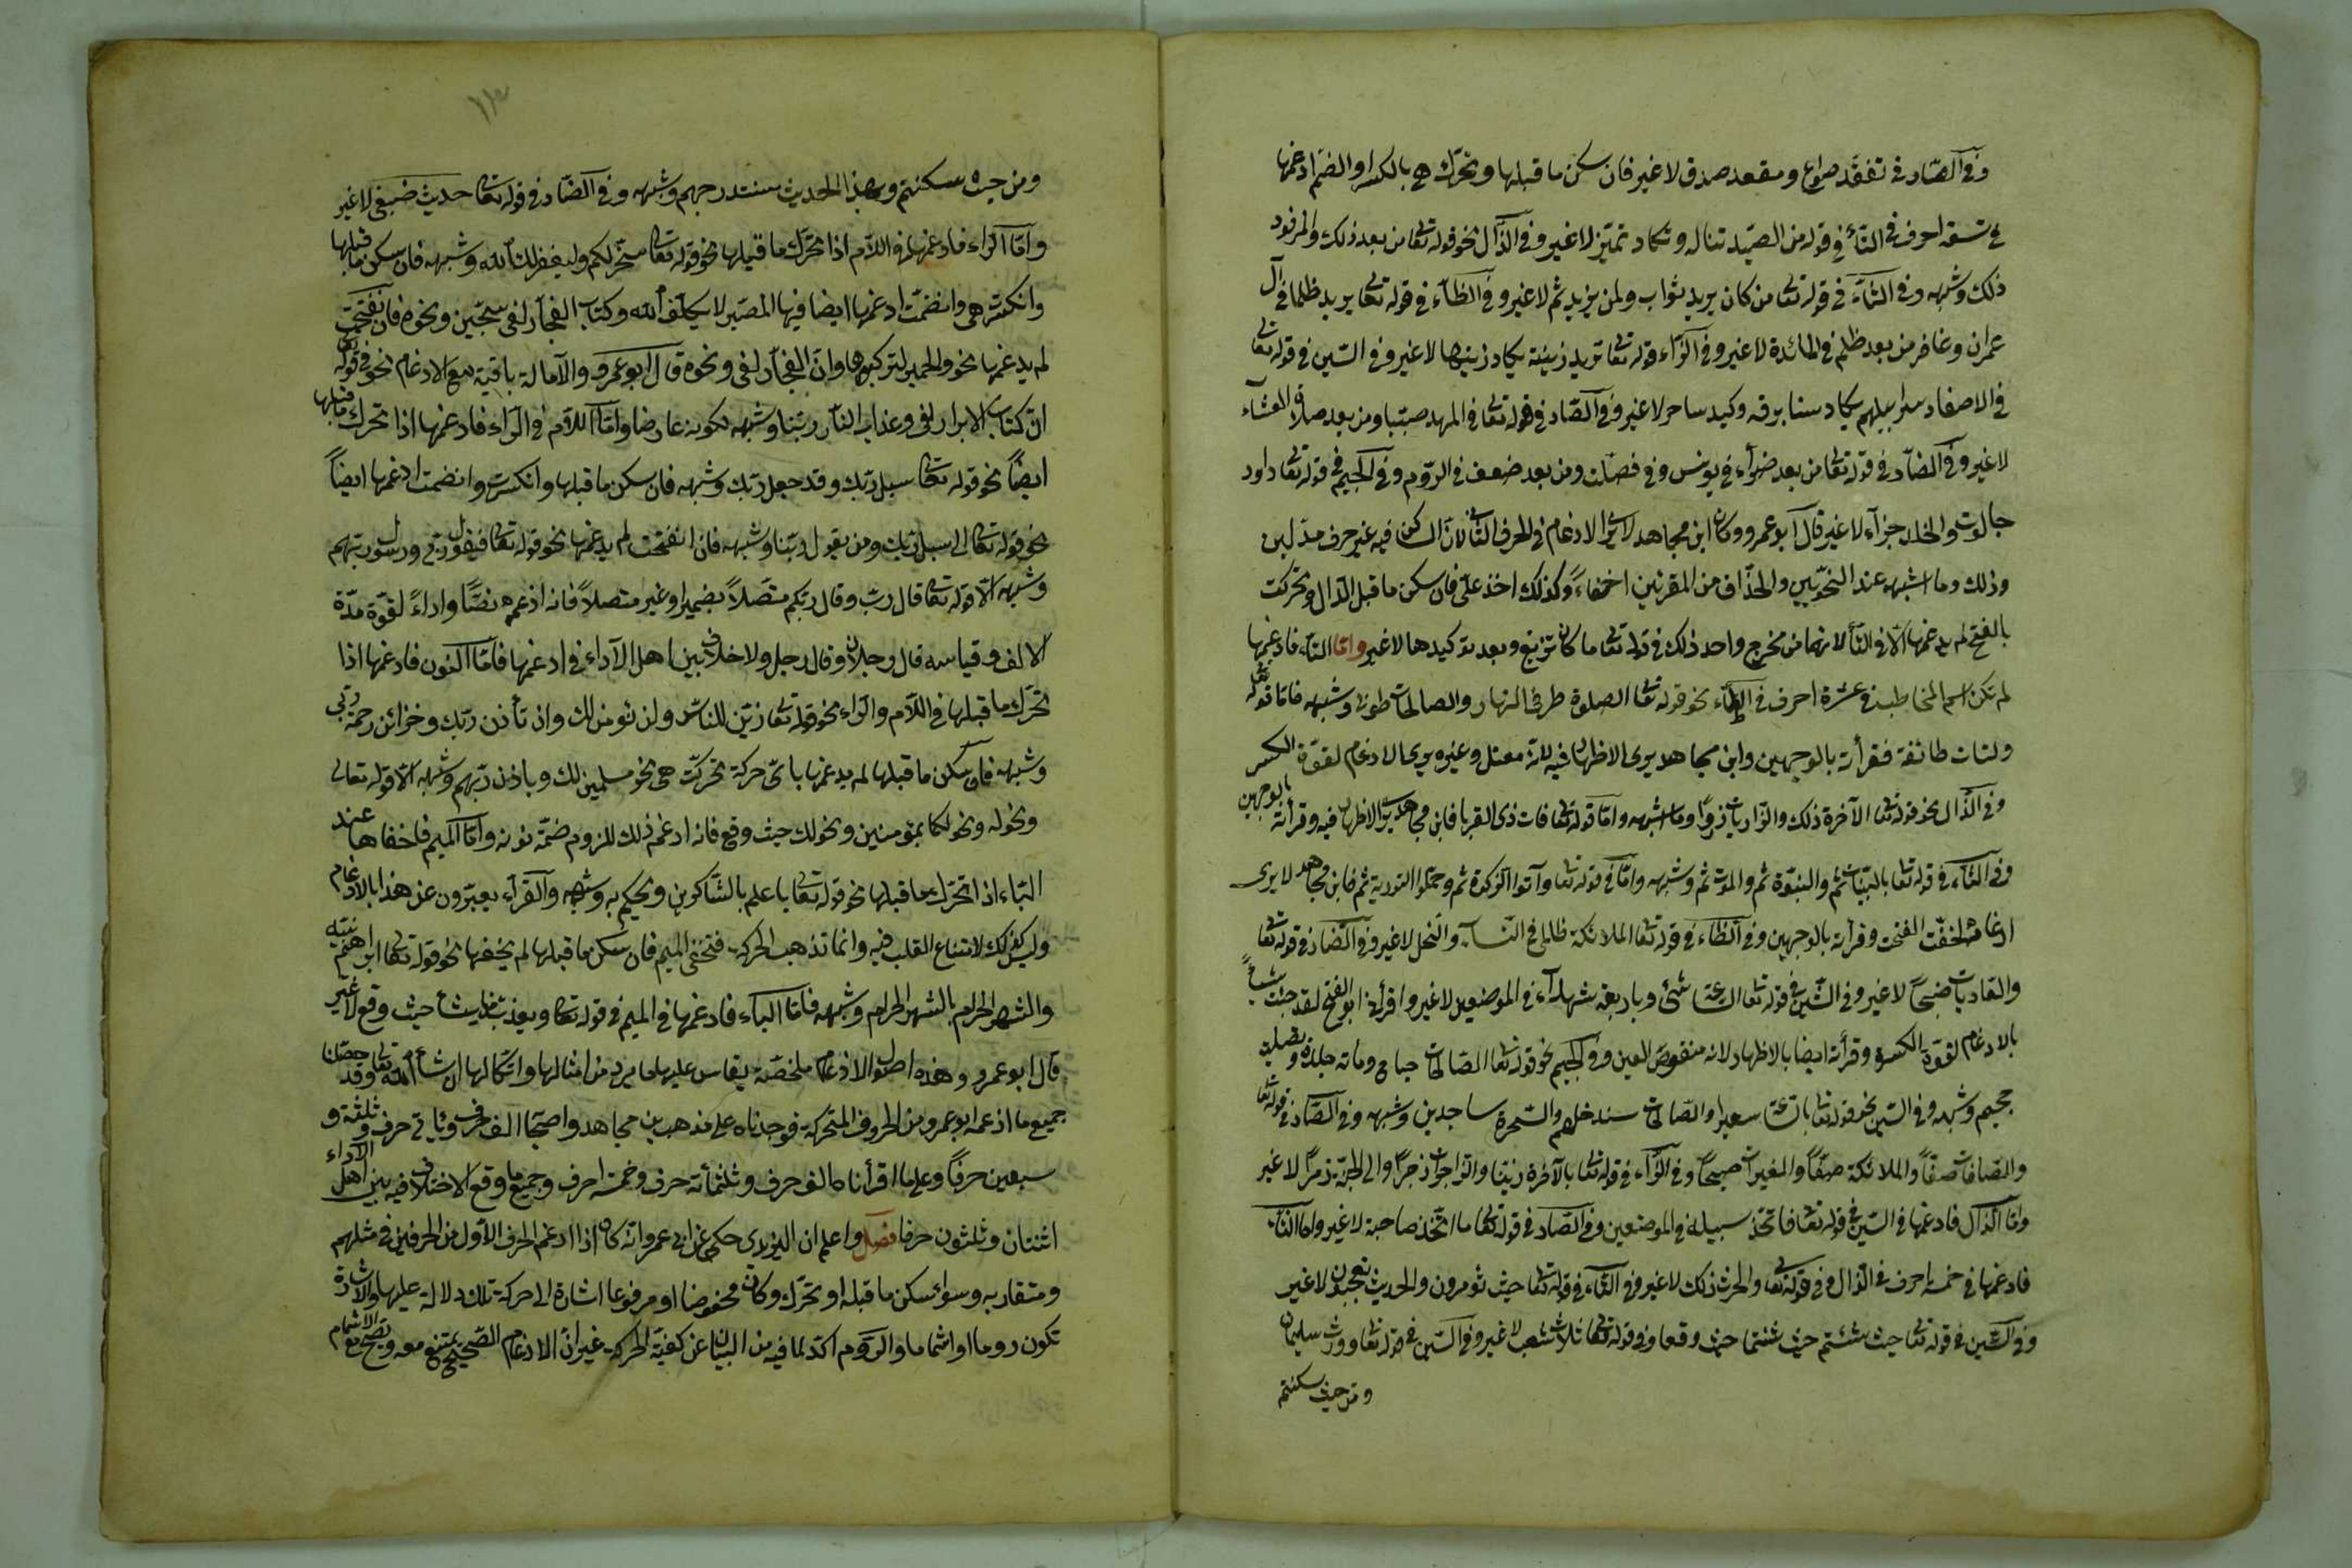 وفي الصاد في تفقد صواع ومقعد صدق لا غير فان سكن ما قبلها وتحرك هي بالكسر او الضم ادغمها
في تسعة احرف في التاء في قوله من الصيد تناله وتكاد تميز لا غير وفي الذال نحو قوله تعا من بعد ذلك والمرفود
ذلك وشبهه وفي الثاء في قوله تعا من كان يريد ثواب ولمن يريد ثم لا غير وفي الظاء في قوله تعا يريد ظلما في آل
عمران وغافر من بعد ظلم في المائدة لا غير وفي الزاء قوله تعا تريد زينة يكاد زيتها لا غير وفي السين في قوله تعا
في الاصفاد سرابيلهم يكاد سنا برقه وكيد ساحر لا غير وفي الصاد في قوله تعا في المهد صبيا ومن بعد صلاة العشاء
لا غير وفي الضاد في قوله تعا من بعد ضراء في يونس وفي فصلت ومن بعد ضعف في الروم وفي الجيم في قوله تعا داود
جالوت والخلد جزآء لا غير قال ابو عمرو وكان ابن مجاهد لا يرى الادغام في الحرف الثاني لان الساكن فيه غير حرف مد لين
وذلك وما اشبهه عند النحويين والحذاق من المقرئين اخفاء وكذلك اخذ علي فان سكن ما قبل الدال وتحركت
بالفتح لم يدغمها الا في التاء لانهما من مخرج واحد ذلك في قوله تعا ما كاد تزيغ وبعد توكيدها لا غير واما التاء فادغمها
لم تكن اسم المخاطب في عشرة احرف في الطاء نحو قوله تعا الصلوة طرفي النهار والصالحات طوبى وشبهه فاما قوله تعا
ولتات طائفة فقرأته بالوجهين وابن مجاهد يرى الاظهار فيه لانه معتل وغيره يرى الادغام لقوة الكسر
وفي الذال نحو قوله تعا الآخرة ذلك والذاريات ذروا وما اشبهه واما قوله تعا فات ذى القربا فابن مجاهد يرى الاظهار فيه وقرأته بالوجهين
وفي الثاء في قوله تعا بالبينات ثم والنبوة ثم والموت ثم وشبهه واما في قوله تعا وآتوا الزكوة ثم وحملوا التورية ثم فابن مجاهد لا يرى
ادغامه لخفت الفتحت وقرأته بالوجهين وفي الظاء في قوله تعا الملائكة ظالمي في النسآء والنحل لا غير وفي الضاد في قوله تعا
والعاديات ضبحا لا غير وفي الشين في قوله تعا الساعة شئ وباربعة شهدآء في الموضعين لا غير واقرأني ابو الفتح لقد جئت شيئا
بالادغام لقوة الكسرة وقرأته ايضا بالاظهار لانه منقوص العين وفي الجيم نحو قوله تعا الصالحات جناح ومائة جلدة وتصلية
جحيم وشبهه وفي السين نحو قوله تعا بالساعة سعيرا والصالحات سندخلهم والسحرة ساجدين وشبهه وفي الصاد في قوله تعا
والصافات صفا والملائكة صفا والمغيرات صبحا وفي الزاء في قوله تعا بالآخرة زينا والزاجرات زجرا والى الجنة زمرا لا غير
واما الذال فادغمها في السين في قوله تعا فاتخذ سبيله في الموضعين وفي الصاد في قوله تعا ما اتخذ صاحبة لا غير واما الثاء
فادغمها في خمسة احرف في الذال وفي قوله تعا والحرث ذلك لا غير وفي التاء في قوله تعا حيث تؤمرون والحديث تعجبون لا غير
وفي الشين في قوله تعا حيث شئتم حيث شئتما حيث وقعا وفي قوله تعا ثلاث شعب لا غير وفي السين في قوله تعا وورث سليمان
ومن حيث سكنتم
ومن حيث سكنتم وبهذا الحديث سنستدرجهم وشبهه وفي الضاد في قوله تعا حديث ضيف لا غير
واما الراء فادغمها في اللام اذا تحرك ما قبلها نحو قوله تعا سخر لكم وليغفر لك الله وشبهه فان سكن ما قبلها
وانكسرت هي وانضمت ادغمها ايضا فيها المصير لا يكلف الله وكتاب الفجار لفي سجين ونحوه فان انفتحت
لم يدغمها نحو والحمير لتركبوها وان الفجار لفي ونحوه قال ابو عمرو والامالة باقية مع الادغام نحو في قوله تعا
ان كتاب الابرار لفي وعذاب النار ربنا وشبهه لكونه عارضا واما اللام في الراء فادغمها اذا تحرك ما قبلها
ايضا نحو قوله تعا سبل ربك وقد جعل ربك وشبهه فان سكن ما قبلها وانكسرت وانضمت ادغمها ايضا
نحو قوله تعا الى سبيل ربك ومن يقول ربنا وشبهه فان انفتحت لم يدغمها نحو قوله تعا فيقول ربي ورسول ربهم
وشبهه الا قوله تعا قال رب وقال ربكم متصلا بضمير او غير متصلا فانه ادغمه نصا واداء لقوة مدة
الالف وقياسه قال رجلان وقال رجل ولا خلاف بين اهل الآداء في ادغمها فاما النون فادغمها اذا
تحرك ما قبلها في اللام والراء نحو قوله تعا زين للناس ولن نؤمن لك واذ تأذن ربك وخزائن رحمة ربي
وشبهه فان سكن ما قبلها لم يدغمها باي حركة تحركت هي نحو مسلمين لك وباذن ربهم وشبهه الا قوله تعالى
ونحن له ونحن لكما بمؤمنين ونحن لك حيث وقع فانه ادغم ذلك للزوم ضمة نونه واما الميم فاخفاها عند
الباء اذا تحرك ما قبلها نحو قوله تعا باعلم بالشاكرين ويحكم به وشبهه والقرآء يعبرون عن هذا بالادغام
وليس كذلك لامتناع القلب فيه وانما تذهب الحركة فتخفى الميم فان سكن ما قبلها لم يخفها نحو قوله تعا ابراهيم بنيه
والشهر الحرام بالشهر الحرام وشبهه فاما الباء فادغمها في الميم في قوله تعا ويعذب من يشأ حيث وقع لا غير
قال ابو عمرو وهذه اصول الادغام ملخصة يقاس عليها ما يرد من امثالها واشكالها ان شأ الله تعا وقد حصلنا
جميع ما ادغمه ابو عمرو من الحروف المتحركة فوجدناه على مذهب بن مجاهد واصحابه الف حرف ومأتي حرف وثلثة و
سبعين حرفا وعلى ما اقرأناه الف حرف وثلثمأئة حرف وخمسة احرف وجميع ما وقع الاختلاف فيه بين اهل الآداء
اثنتان وثلثون حرفا فصل واعلم ان اليزيدي حكى عن ابي عمرو انه كان اذا ادغم الحرف الاول من الحرفين في مثلهم
ومتقاربه وسواء سكن ما قبله او تحرك وكان مخفوضا او مرفوعا اشارة الى حركة تلك دلالة عليها والاشارة
تكون روما او اشماما والروم آكد لما فيه من البيان عن كيفية الحركة غير ان الادغام الصحيح يمتنع معه ويصح مع الاشمام